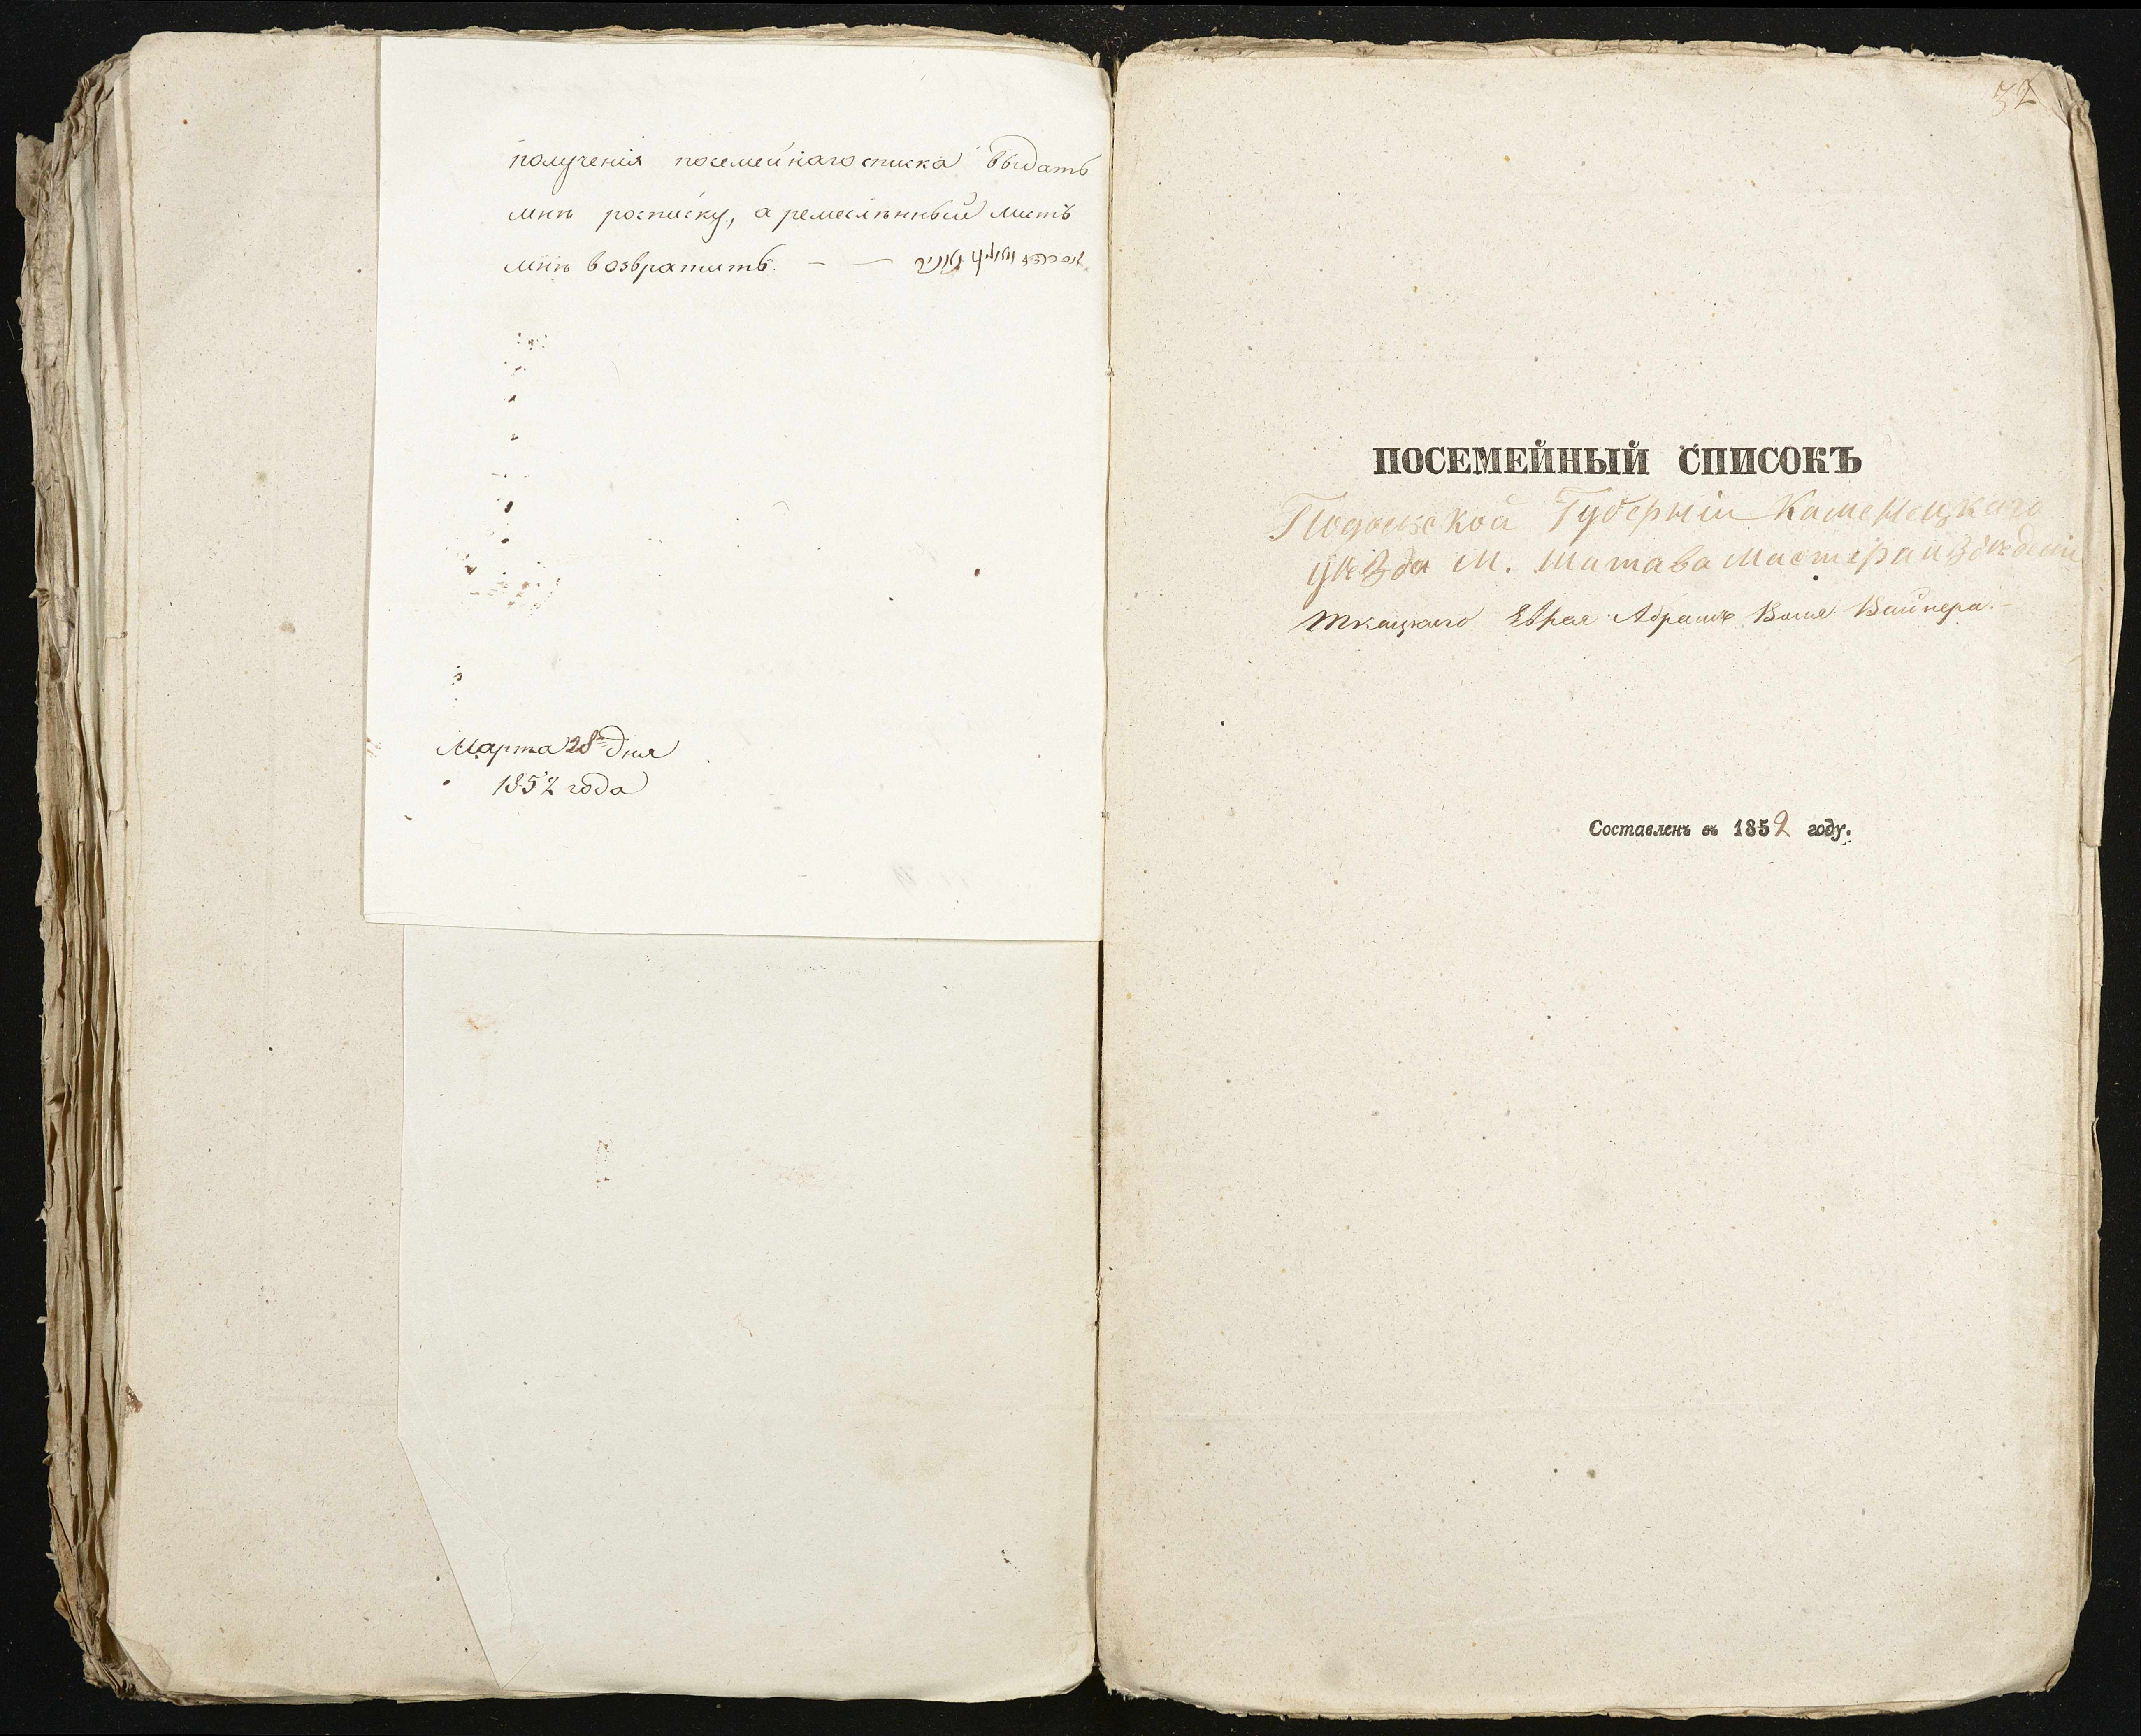 полученія посемейнаго списка выдать
мнѣ росписку, а ремеслѣнный листъ
мнѣ возвратить. — —
Марта 28 дня
1852 года
32
ПОСЕМЕЙНЫЙ СПИСОКЪ
Подольской Губерніи Каменецкаго
уѣзда М. Шатава Мастера
ткацкаго Еврея Абрамъ Вайнера.
Составленъ въ 1852 году.